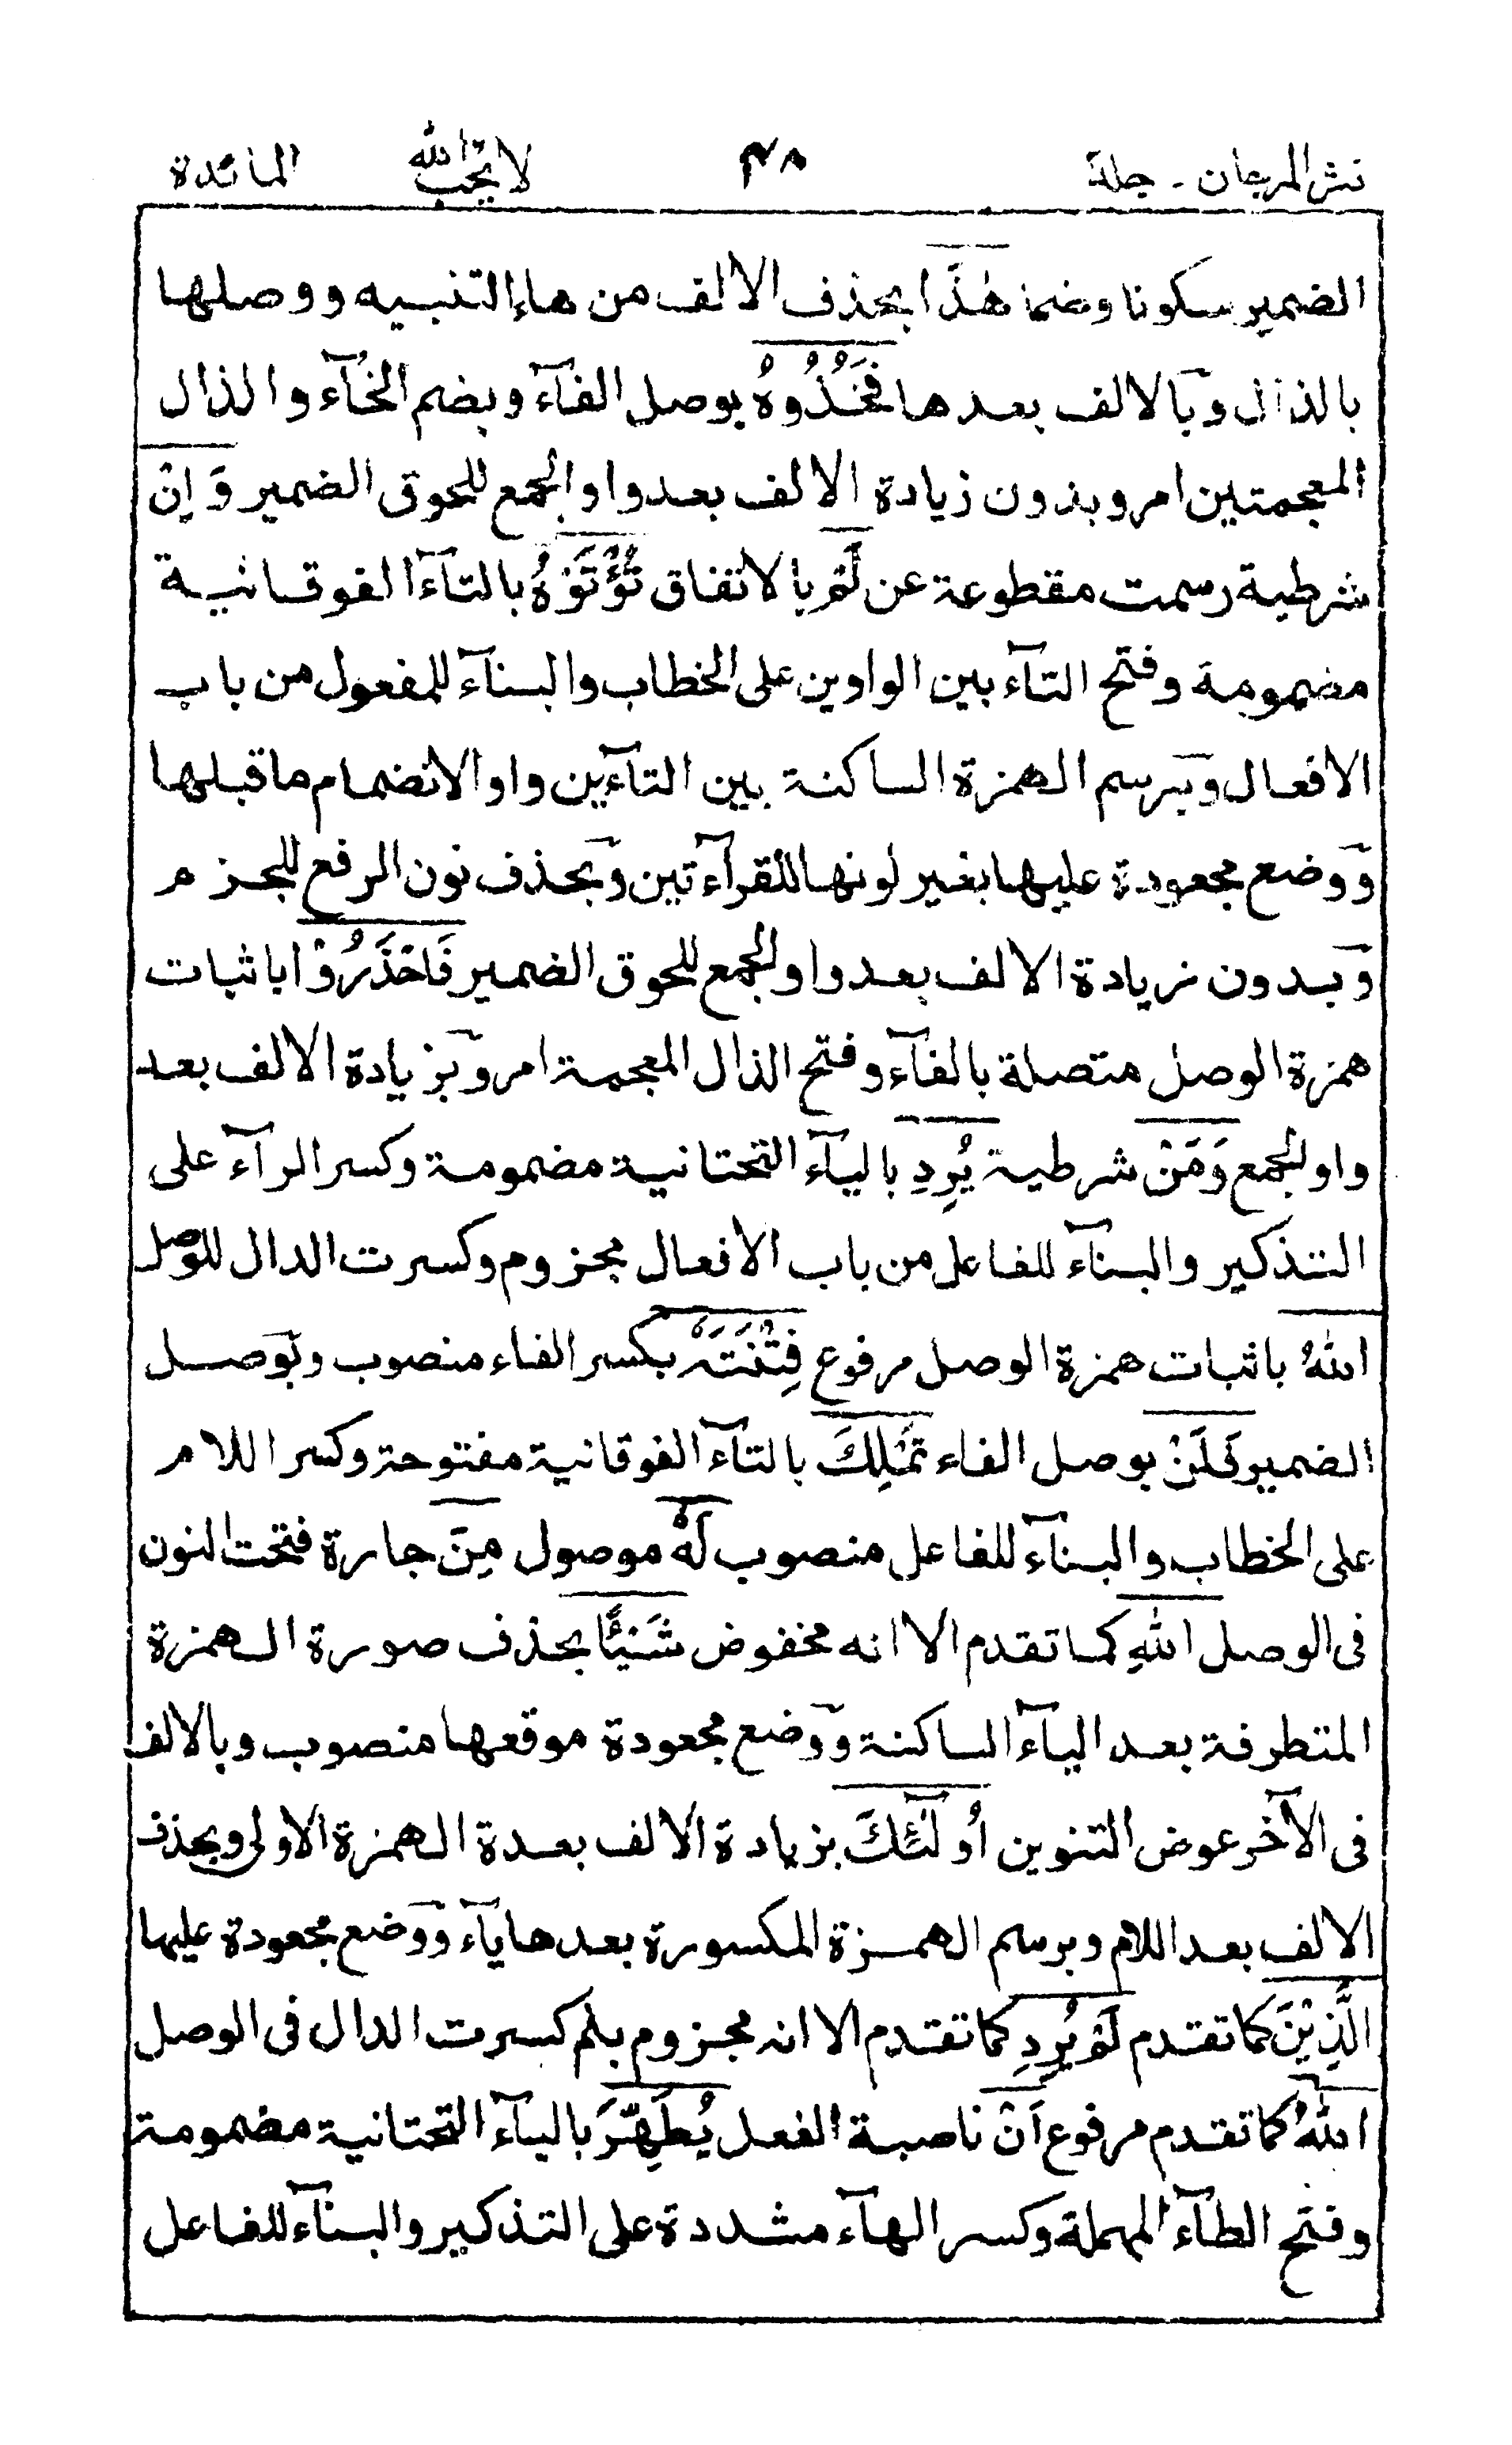 نثر المرجان - جلد ٢ ٤٨ لا يحب الله المائدة
الضمير سكونا وضما هٰذَا بحذف الالف من هاء التنبيه ووصلها
بالذال وبالالف بعدها فَخُذُوهُ بوصل الفآء وبضم الخآء والذال
المعجمتين امر وبدون زيادة الالف بعد واو الجمع للحوق الضمير وَاِنْ
شرطية رسمت مقطوعة عن لَمْ بالاتفاق تُؤْتَوْهُ بالتآء الفوقانية
مضمومة وفتح التآء بين الواوين على الخطاب والبنآء للمفعول من باب
الافعال وبرسم الهمزة الساكنة بين التآءين واوا لانضمام ما قبلها
ووضع مجعودة عليها بغير لونها للقرآءتين وبحذف نون الرفع للجزم
وبدون زيادة الالف بعد واو الجمع للحوق الضمير فَاحْذَرُوْا باثبات
همزة الوصل متصلة بالفآء وفتح الذال المعجمة امر وبزيادة الالف بعد
واو الجمع وَمَنْ شرطية يُرِدِ باليآء التحتانية مضمومة وكسر الرآء على
التذكير والبنآء للفاعل من باب الافعال مجزوم وكسرت الدال للوصل
اللهُ باثبات همزة الوصل مرفوع فِتْنَتَهٗ بكسر الفاء منصوب وبوصل
الضمير فَلَنْ بوصل الفاء تَمْلِكَ بالتآء الفوقانية مفتوحة وكسر اللام
على الخطاب والبنآء للفاعل منصوب لَهٗ موصول مِنَ جارة فتحت النون
فى الوصل اللهِ كما تقدم الا انه مخفوض شَيْئًا بحذف صورة الهمزة
المتطرفة بعد اليآء الساكنة ووضع مجعودة موقعها منصوب وبالالف
فى الآخر عوض التنوين اُولٰٓئِكَ بزيادة الالف بعدة الهمزة الاولى وبحذف
الالف بعد اللام وبرسم الهمزة المكسورة بعدها ياء ووضع مجعودة عليها
الَّذِيْنَ كما تقدم لَمْ يُرِدِ كما تقدم الا انه مجزوم بلم كسرت الدال فى الوصل
اللهُ كما تقدم مرفوع اَنْ ناصبة الفعل يُطَهِّرَ باليآء التحتانية مضمومة
وفتح الطآء المهملة وكسر الهآء مشددة على التذكير والبنآء للفاعل